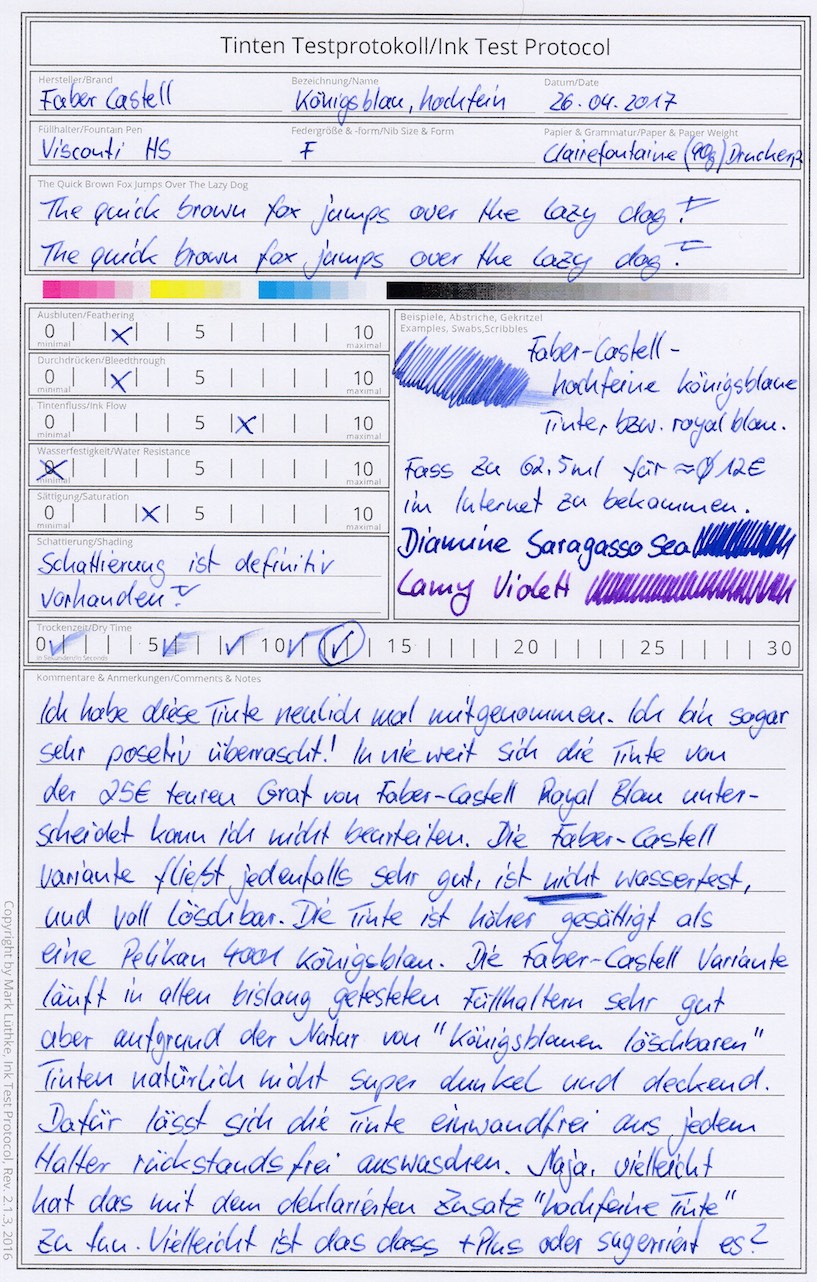 Tinten Testprotokoll/Ink Test Protocol
Hersteller/Brand
Faber Castell
Bezeichnung/Name
Königsblau, hochfein
Datum/Date
26.04.2017
Füllhalter/Fountain Pen
Visconti HS
Federgröße & -form/Nib Size & Form
F
Papier & Grammatur/Paper & Paper Weight
Clairefontaine (90g) Druckerp.
The Quick Brown Fox Jumps Over The Lazy Dog
The quick brown fox jumps over the lazy dog!
The quick brown fox jumps over the lazy dog!
Ausbluten/Feathering
0 5 10
minimal maximal
Durchdrücken/Bleedthrough
0 5 10
minimal maximal
Tintenfluss/Ink Flow
0 5 10
minimal maximal
Wasserfestigkeit/Water Resistance
0 5 10
minimal maximal
Sättigung/Saturation
0 5 10
minimal maximal
Schattierung/Shading
Schattierung ist definitiv
vorhanden!
Beispiele, Abstriche, Gekritzel
Examples, Swabs,Scribbles
Faber-Castell-
hochfeine königsblaue
Tinte, bzw. royal blau.
Fass zu 62.5ml für ≈Ø 12€
im Internet zu bekommen.
Diamine Saragasso Sea
Lamy Violett
Trockenzeit/Dry Time
0 5 10 15 20 25 30
in Sekunden/in Seconds
Kommentare & Anmerkungen/Comments & Notes
Ich habe diese Tinte neulich mal mitgenommen. Ich bin sogar
sehr posetiv überrascht! In wie weit sich die Tinte von
der 25€ teuren Graf von Faber-Castell Royal Blau unter-
scheidet kann ich nicht beurteilen. Die Faber-Castell
Variante fließt jedenfalls sehr gut, ist nicht wasserfest,
und voll löschbar. Die Tinte ist höher gesättigt als
eine Pelikan 4001 Königsblau. Die Faber-Castell Variante
läuft in allen bislang getesteten Füllhaltern sehr gut
aber aufgrund der Natur von "Königsblauen löschbaren"
Tinten natürlich nicht super dunkel und deckend.
Dafür lässt sich die Tinte einwandfrei aus jedem
Halter rückstandsfrei auswaschen. Naja, vielleicht
hat das mit dem deklarierten Zusatz "hochfeine Tinte"
zu tun. Vielleicht ist das dass +Plus oder sugerriert es?
Copyright by Mark Lüthke, Ink Test Protocol, Rev. 2.1.3, 2016